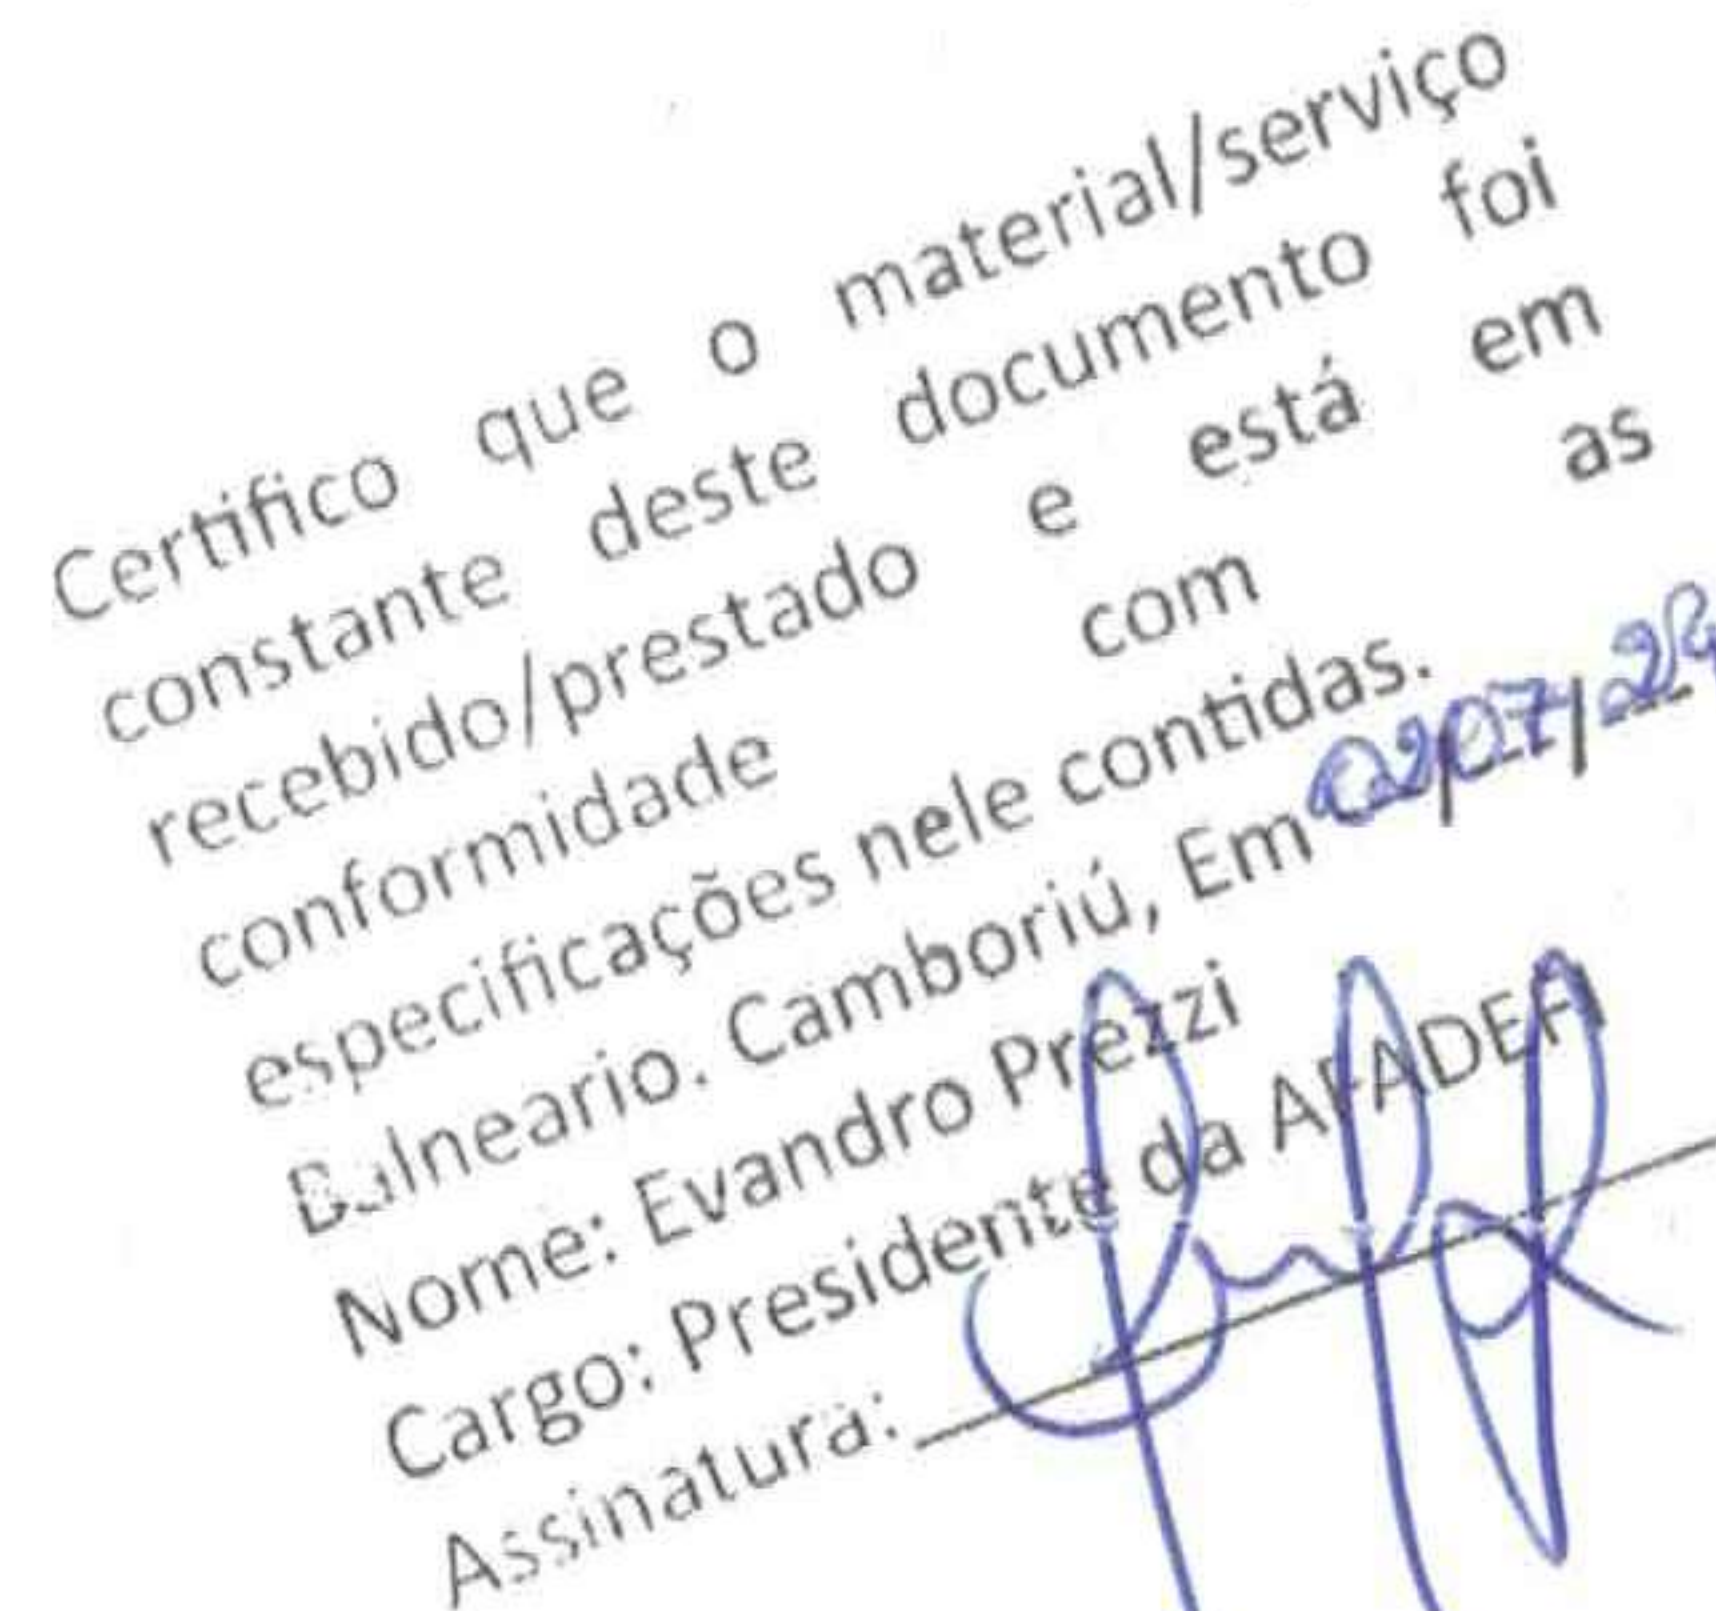 Certifico que o material/serviço
constante deste documento foi
recebido/prestado e está em
conformidade com as
especificações nele contidas.
Balneario. Camboriú, Em 02/07/24
Nome: Evandro Prezzi
Cargo: Presidente da AFADEFI
Assinatura: